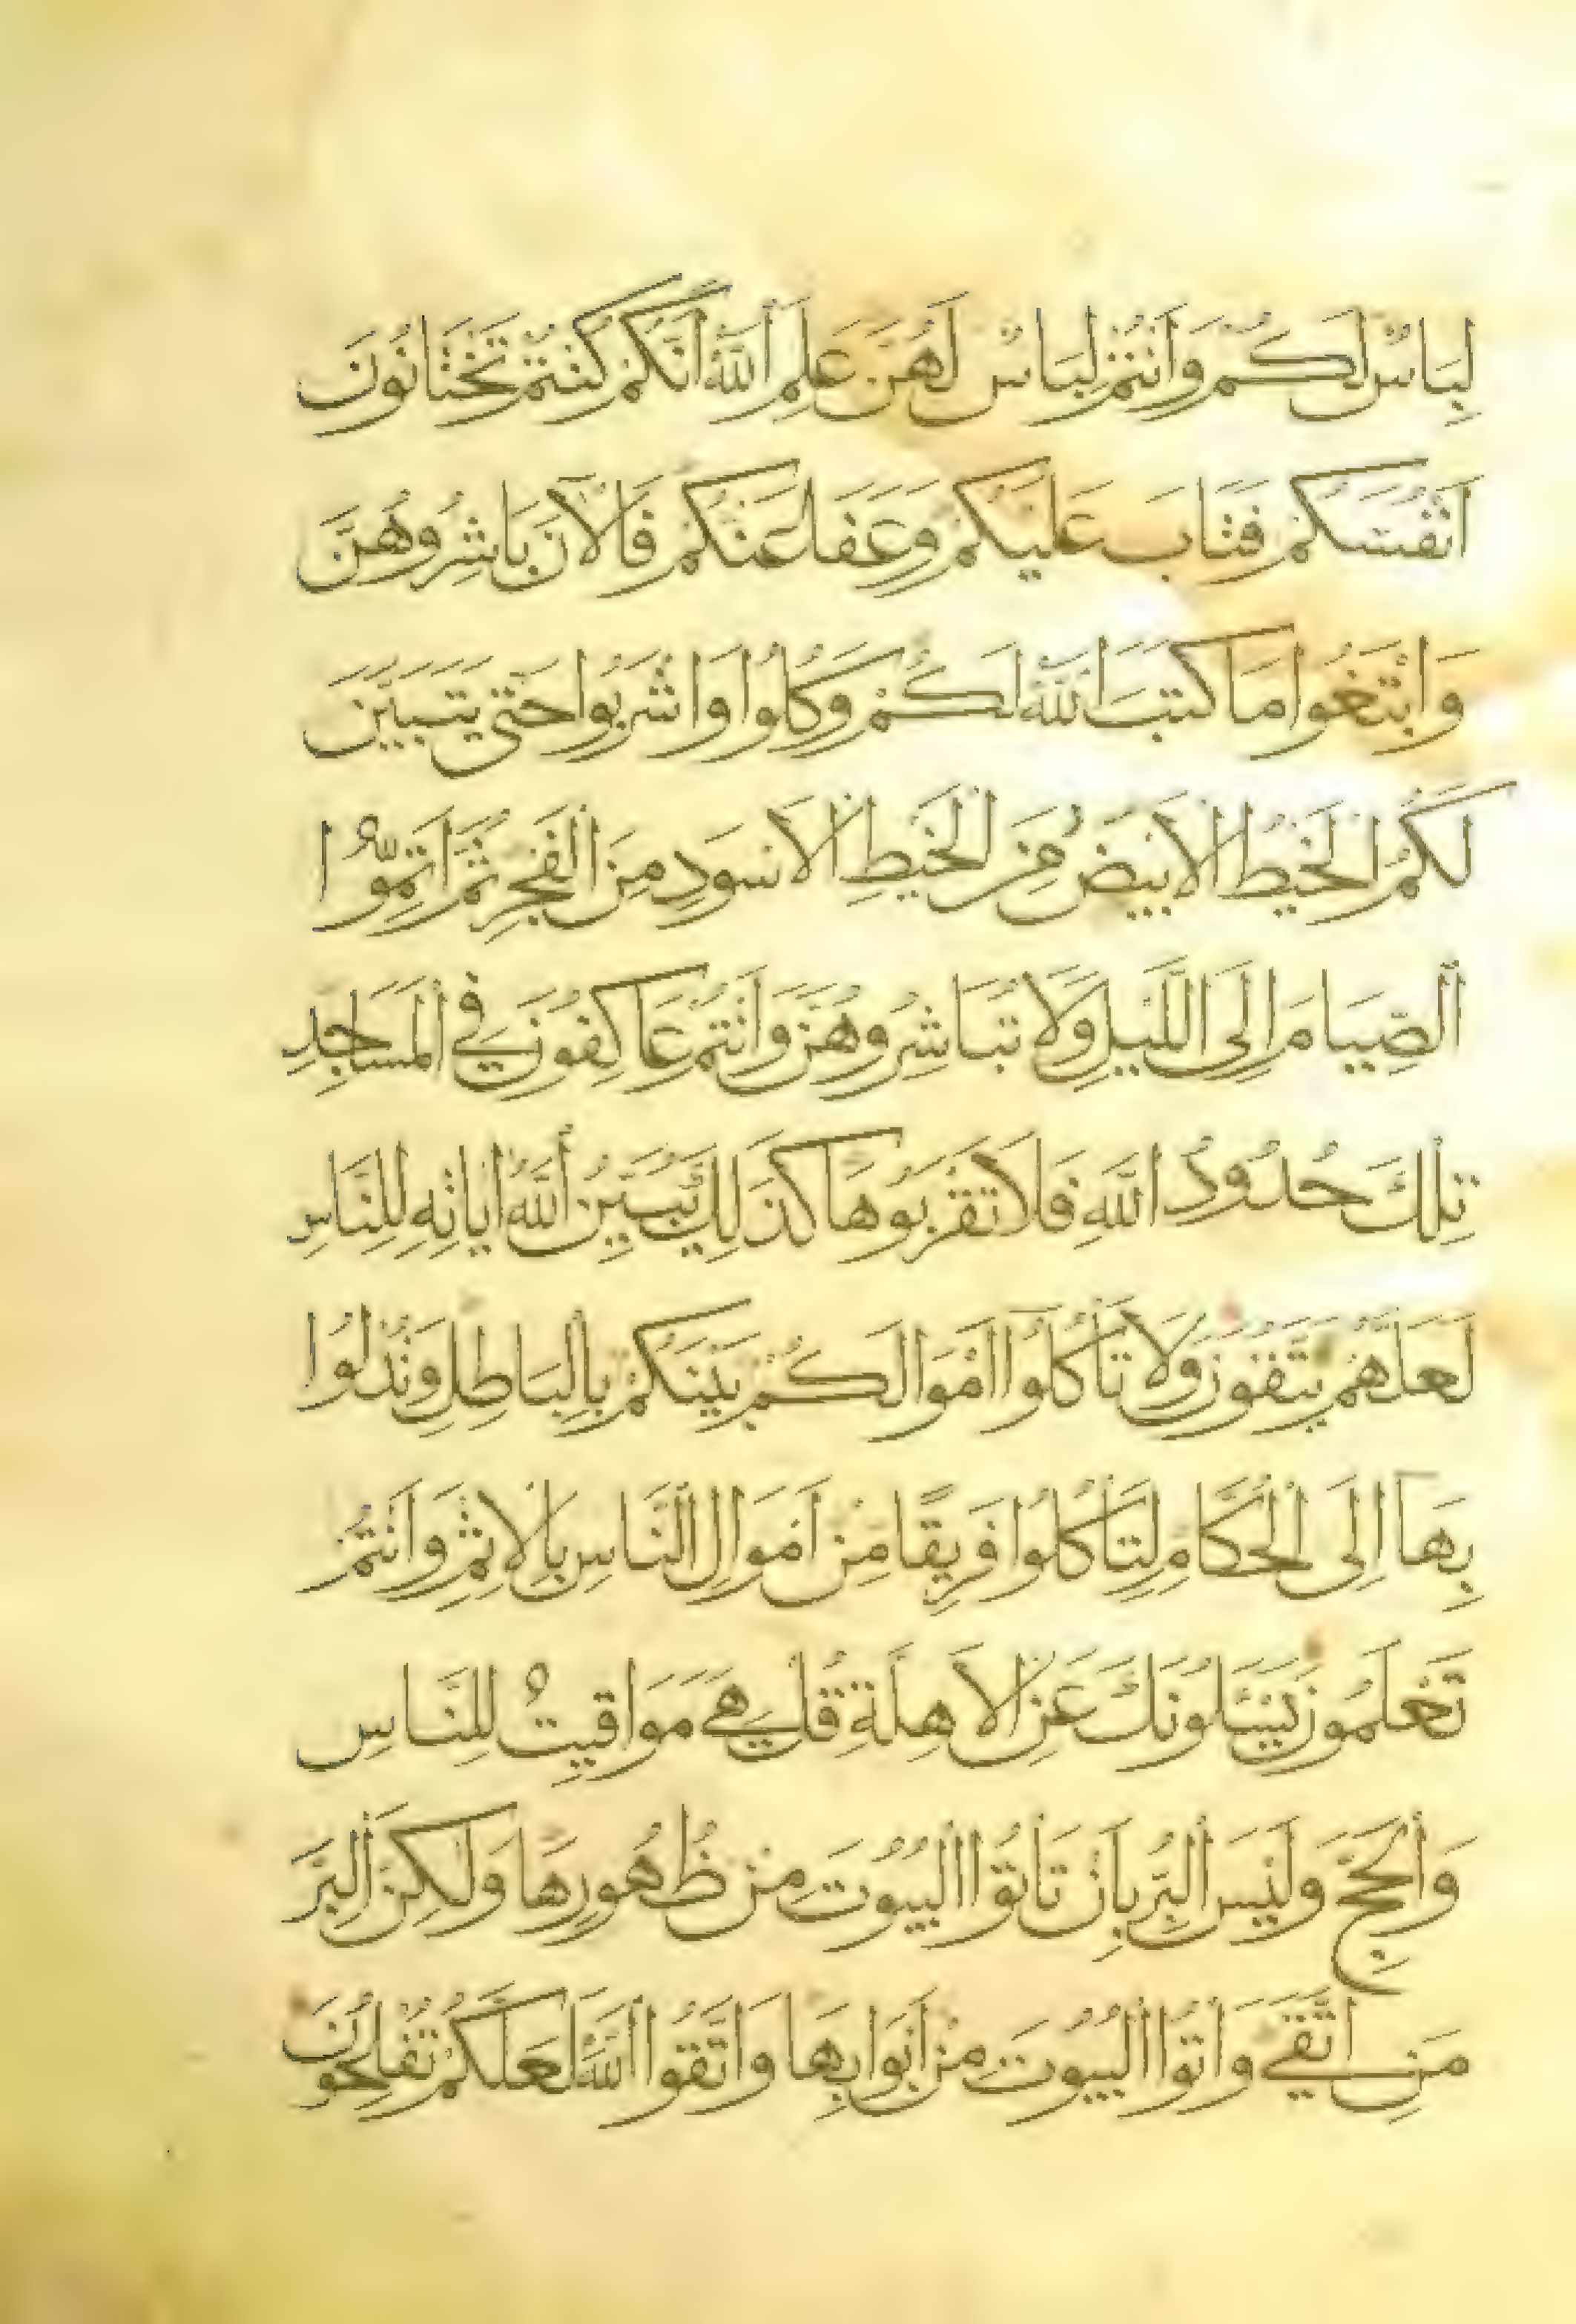 لِبَاسٌ لَكُمْ وَأَنْتُمْ لِبَاسٌ لَهُنَّ عَلِمَ اَللَّهُ اَنَّكُمْ كُنْتُمْ تَخْتَانُونَ
اَنْفُسَكُمْ فَتَابَ عَلَيْكُمْ وَعَفَا عَنْكُمْ فَالْآنَ بَاشِرُوهُنَّ
وَابْتَغُوا مَا كَتَبَ اللَّهُ لَكُمْ وَكُلُوا وَاشْرَبُوا حَتَّى يَتَبَيَّنَ
لَكُمُ الْخَيْطُ الْاَبْيَضُ مِنَ الْخَيْطِ الْاَسْوَدِ مِنَ الْفَجْرِ ثُمَّ اَتِمُّوا
اَلصِّيَامَ اِلَى اللَّيْلِ وَلَا تُبَاشِرُوهُنَّ وَاَنْتُمْ عَاكِفُونَ فِي الْمَسَاجِدِ
تِلْكَ حُدُودُ اللَّهِ فَلَا تَقْرَبُوهَا كَذَلِكَ يُبَيِّنُ اَللَّهُ اٰيَاتِهِ لِلنَّاسِ
لَعَلَّهُمْ يَتَّقُونَ وَلَا تَأْكُلُوا اَمْوَالَكُمْ بَيْنَكُمْ بِالْبَاطِلِ وَتُدْلُوا
بِهَا اِلَى الْحُكَّامِ لِتَأْكُلُوا فَرِيقًا مِنْ اَمْوَالِ النَّاسِ بِالْاِثْمِ وَاَنْتُمْ
تَعْلَمُونَ يَسْـَٔلُونَكَ عَنِ الْاَهِلَّةِ قُلْ هِيَ مَوَاقِيتُ لِلنَّاسِ
وَالْحَجِّ وَلَيْسَ الْبِرُّ بِاَنْ تَاْتُوا الْبُيُوتَ مِنْ ظُهُورِهَا وَلَكِنَّ الْبِرَّ
مَنِ اتَّقَى وَاْتُوا الْبُيُوتَ مِنْ اَبْوَابِهَا وَاتَّقُوا اللَّهَ لَعَلَّكُمْ تُفْلِحُونَ